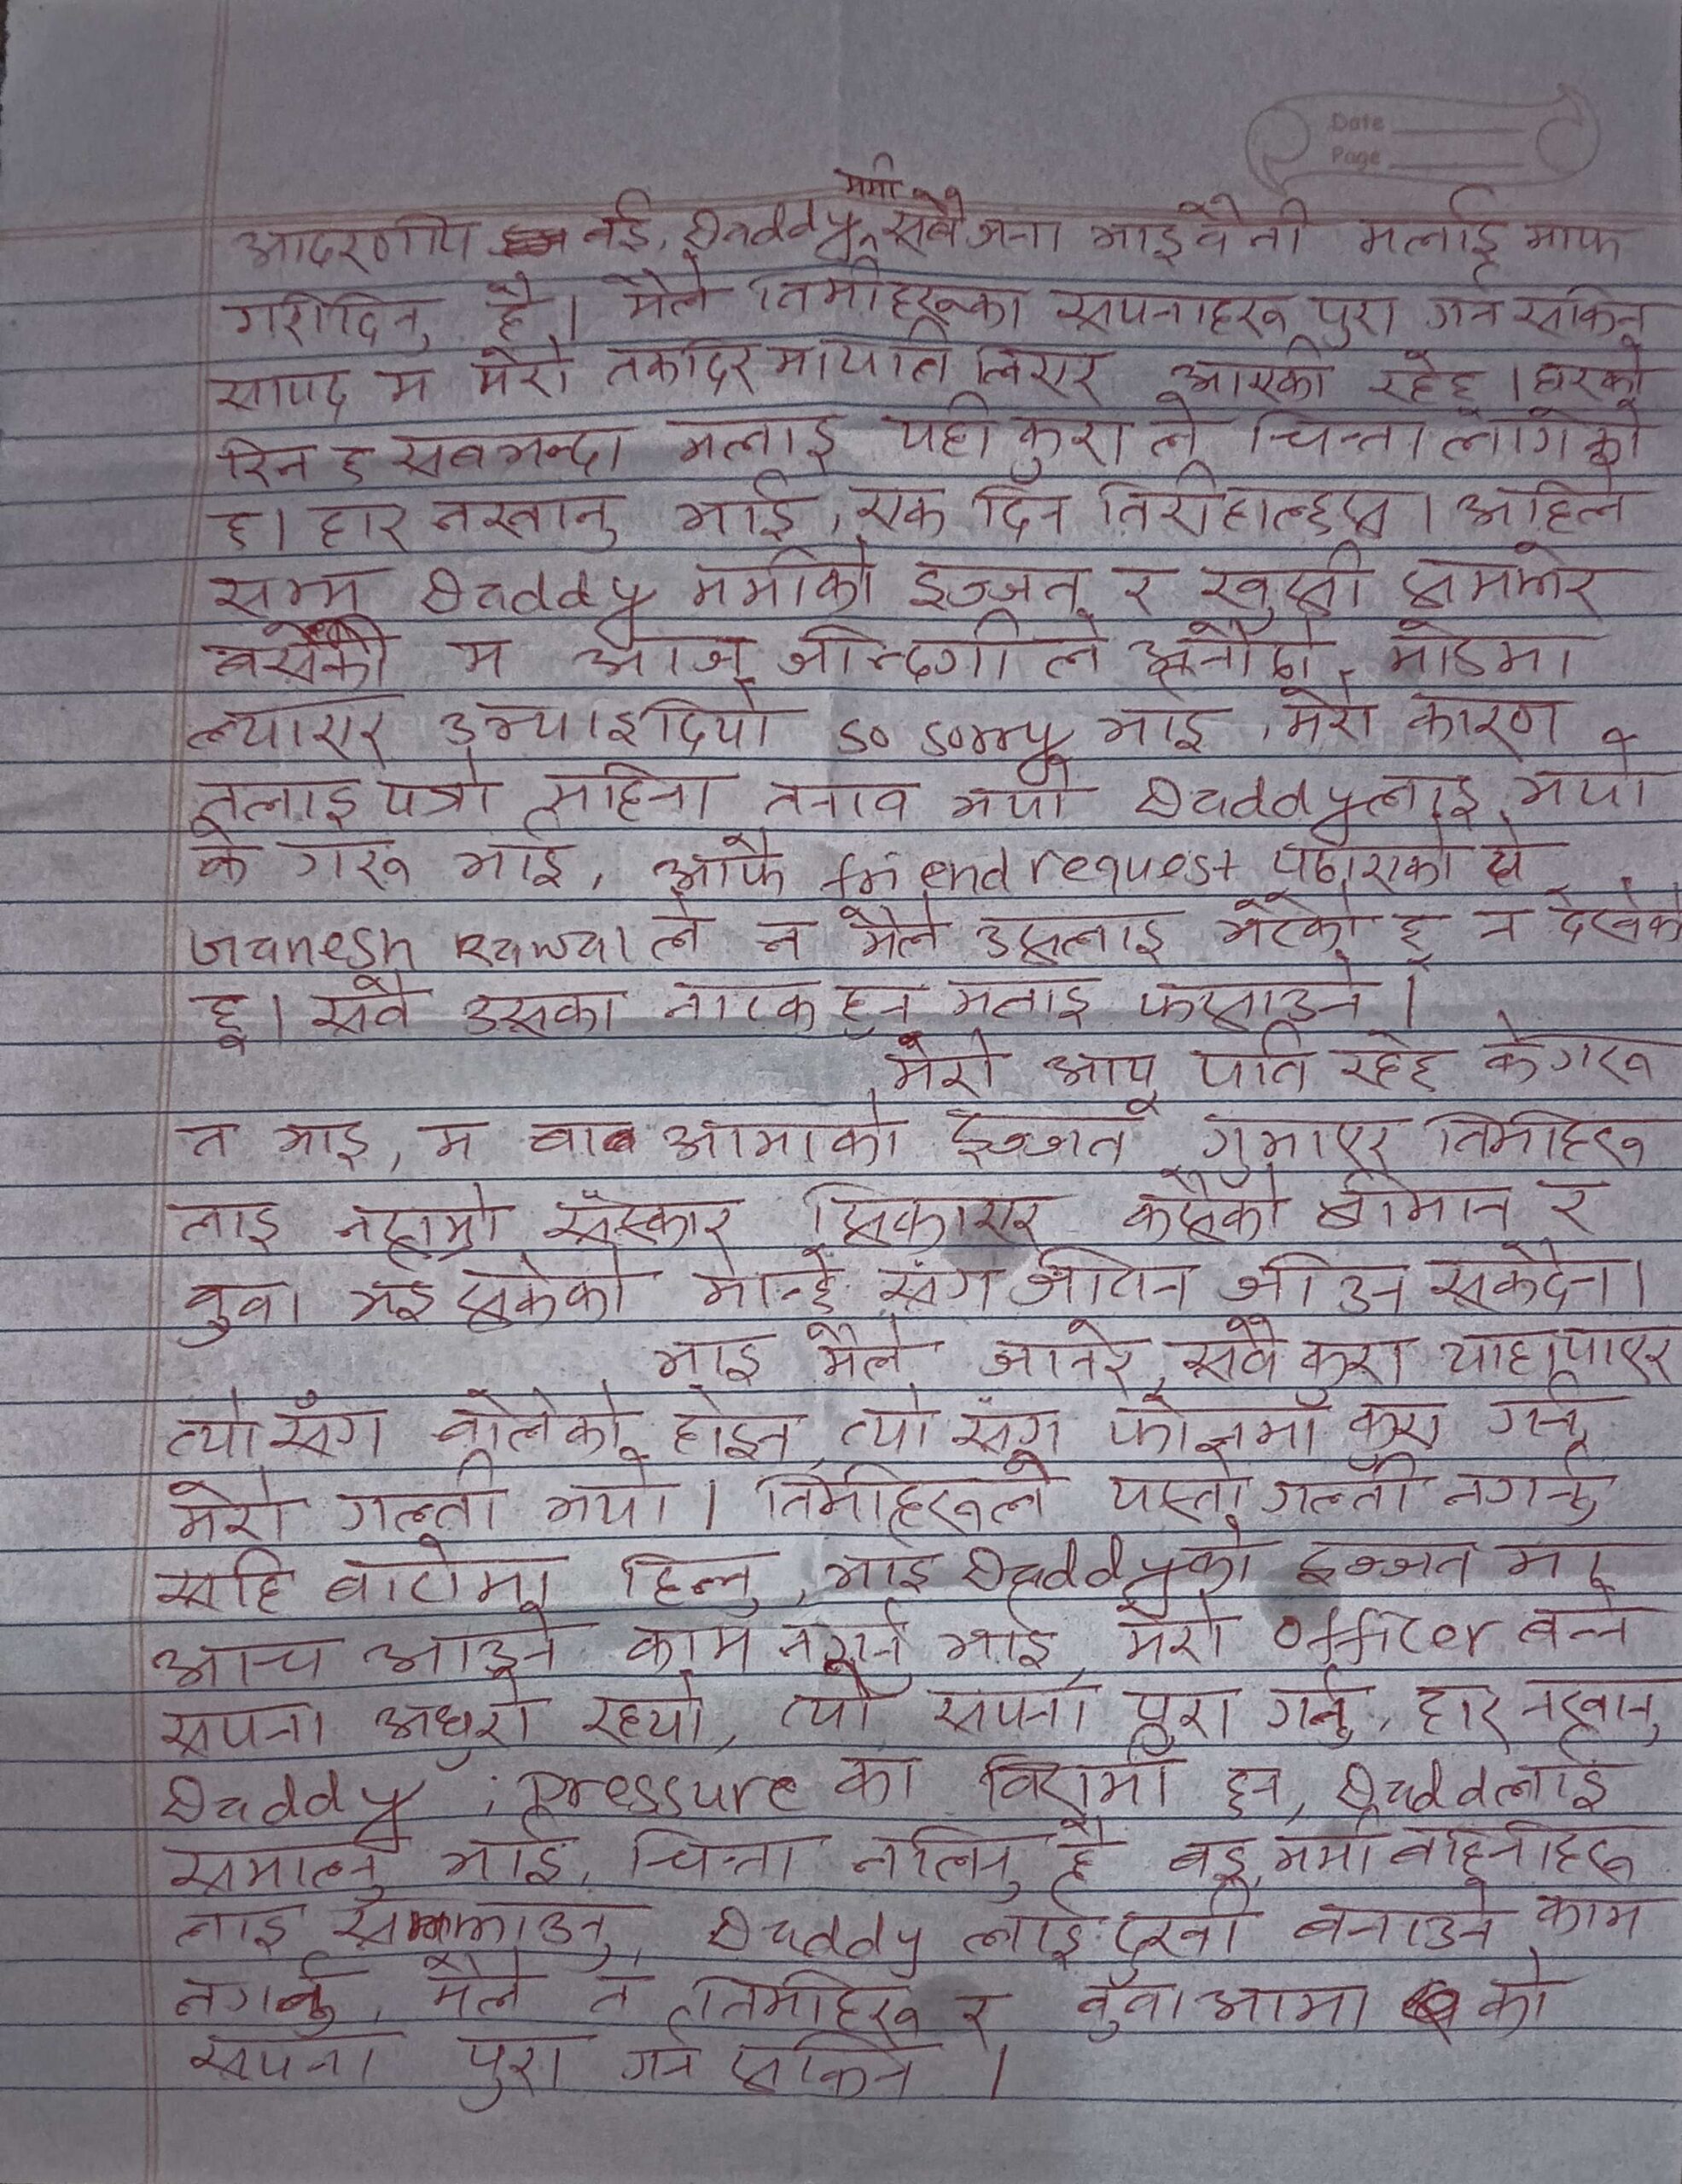 Date
Page
ममी
आदरणीय बई, Daddy, सबैजना भाइबैनी मलाई माफ
गरीदिनु है। मैले तिमीहरूका सपनाहरू पुरा गर्न सकिन
सायद म मेरो तकदिर माथाति लिएर आएको रहेछु। घरको
रिन छ सबभन्दा मलाइ यही कुरा ले चिन्ता लागेको
छ। हार नखानु भाई, एक दिन तिरीहाल्छस। अहिले
सम्म Daddy ममीको इज्जत र खुसी सम्झेर
बसेकी म आज जीन्दगी ले अनौठो मोडमा
ल्याएर उभ्याइदियो so sorry भाइ, मेरो कारण
तलाइ पत्रो सहिना तनाव भयो Daddyलाइ भयो
के गरू भाई, आफै friend request पठाएको थे
Ganesh Rawal ले न मैले उसलाइ भेटेको छु न देखेको
छु। सबै उसका नाटक हुन मलाइ फसाउने।
मेरो आयु यति रहेछ के गरू
त भाइ, म बाबआमाको इज्जत गुमाएर तिमीहरू
लाइ नराम्रो संस्कार सिकाएर कसैको श्रीमान र
बुवा भइसकेको मान्छे संग जीवन जीउन सक्दैन।
भाइ मैले जानेरे, सबै कुरा थाहापाएर
त्यो सँग बोलेको होइन, त्यो सँग फोनमाँ कुरा गर्नु
मेरो गल्ती भयो। तिमीहरूले यस्तो गल्ती नगर्नु
सहि बाटोमा हिन्नु, भाइ Daddyको इज्जत मा
आच आउने काम नगर्नु भाइ, मेरो officer बन्ने
सपना अधुरो रहयो, त्यो सपना पुरा गर्नु, हार नखानु,
Daddy, pressure का विरामी हुन, Daddलाई
समाल्नु भाई, चिन्ता नलिनु है बइ, ममी बहिनीहरू
लाइ सम्झाउनु, Daddy लाइ दुखी बनाउने काम
नगर्नु, मैले त तिमीहरू र बुँवाआमा को
सपना पुरा गर्न सकिन।